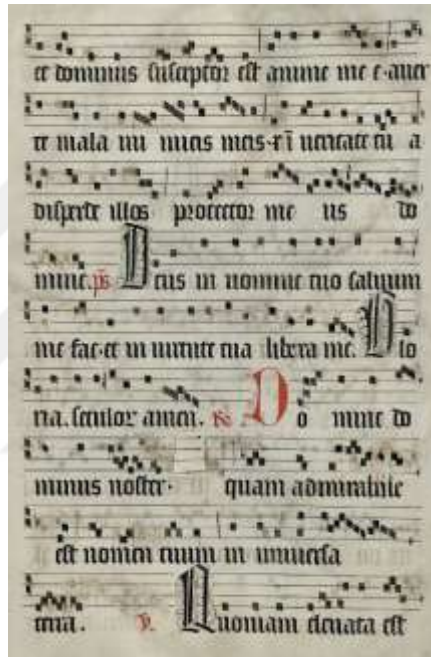 et dominus susceptor est anime me e. auer
te mala ini micis meis. et ī ueritate tu a
disperde illos protector me us do
mine. ps Deus in nomine tuo saluum
me fac. et in uirtute tua libera me. Glo
ria. seculor amen. Do mine do
minus noster. quam admirabile
est nomen tuum in uniuersa
terra. V. Quoniam eleuata est